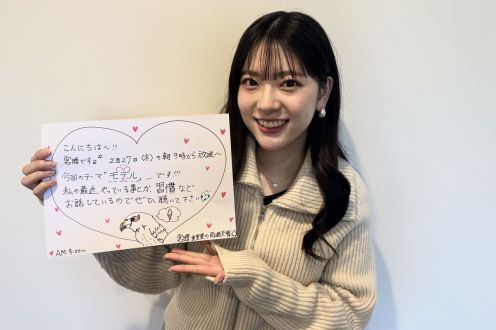 こんにちは〜!!
宮﨑です。 2月27日(木)の朝 9時から放送〜
今回のテーマ "モデル" … です!!!
私の最近やっている事とか、習慣など
お話しているのでぜひ聴いて下さい
AM:9:00〜